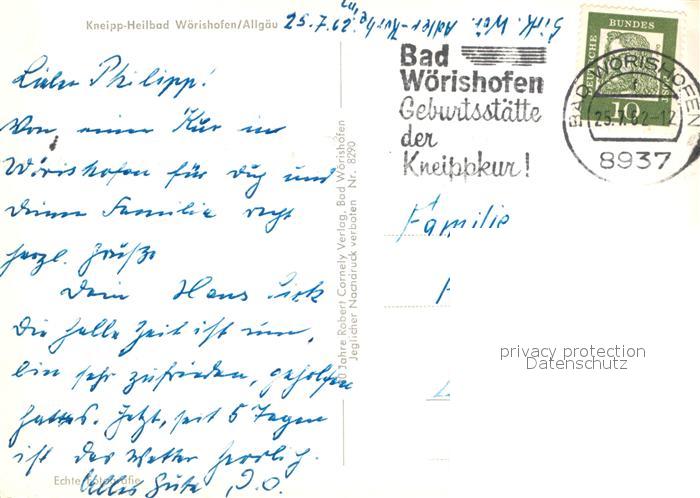 Kneipp-Heilbad Wörishofen/Allgäu
25.7.62.
Lieber Philipp!
Von einer Kur in
Wörishofen für Dich und
Deine Familie recht
herzl. Grüße
Dein Hans
Die halbe Zeit ist um,
bin sehr zufrieden, geholfen
hat es. Jetzt, seit 5 Tagen
ist das Wetter herrlich.
Alles Gute, D.O.
Echte Fotografie
Jahre Robert Cornely Verlag, Bad Wörishofen
Jeglicher Nachdruck verboten Nr. 8290
Bad
Wörishofen
Geburtsstätte
der
Kneippkur!
DEUTSCHE BUNDES
10
BAD WÖRISHOFEN
25.7.62-12
8937
Familie
privacy protection
Datenschutz